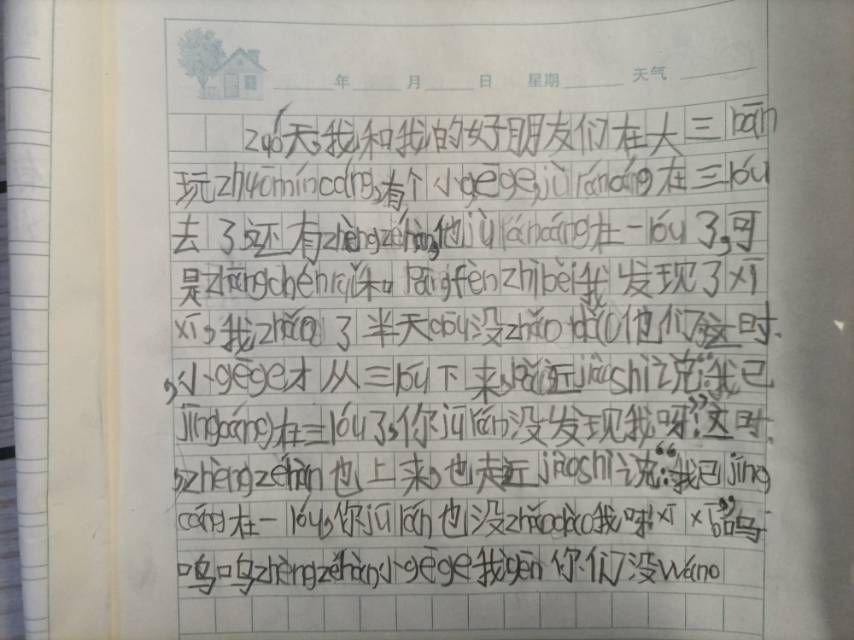 年 月 日 星期 天气
天,我和我的好朋友们在大三bān
玩zhuōmícáng,有个小gēge,jūráncáng在三lóu
去了,还有zhèngzéhàn,他jūráncáng在一lóu了,可
是zhāngchénruì和 fènzhībèi我发现了xī
xī,我zhǎo了半天dōu没zhǎodào他们,这时
,小gēge才从三lóu下来,近jiàoshì说:“我已
jīngcáng在三lóu了,你jūrán没发现我呀!”这时
,zhèngzéhàn也上来,也走近jiàoshì说:“我已jīng
cáng在一lóu,你jūrán也没zhǎodào我呀!”xīxī 呜
呜呜zhèngzéhàn小gēge我gēn你们没wán